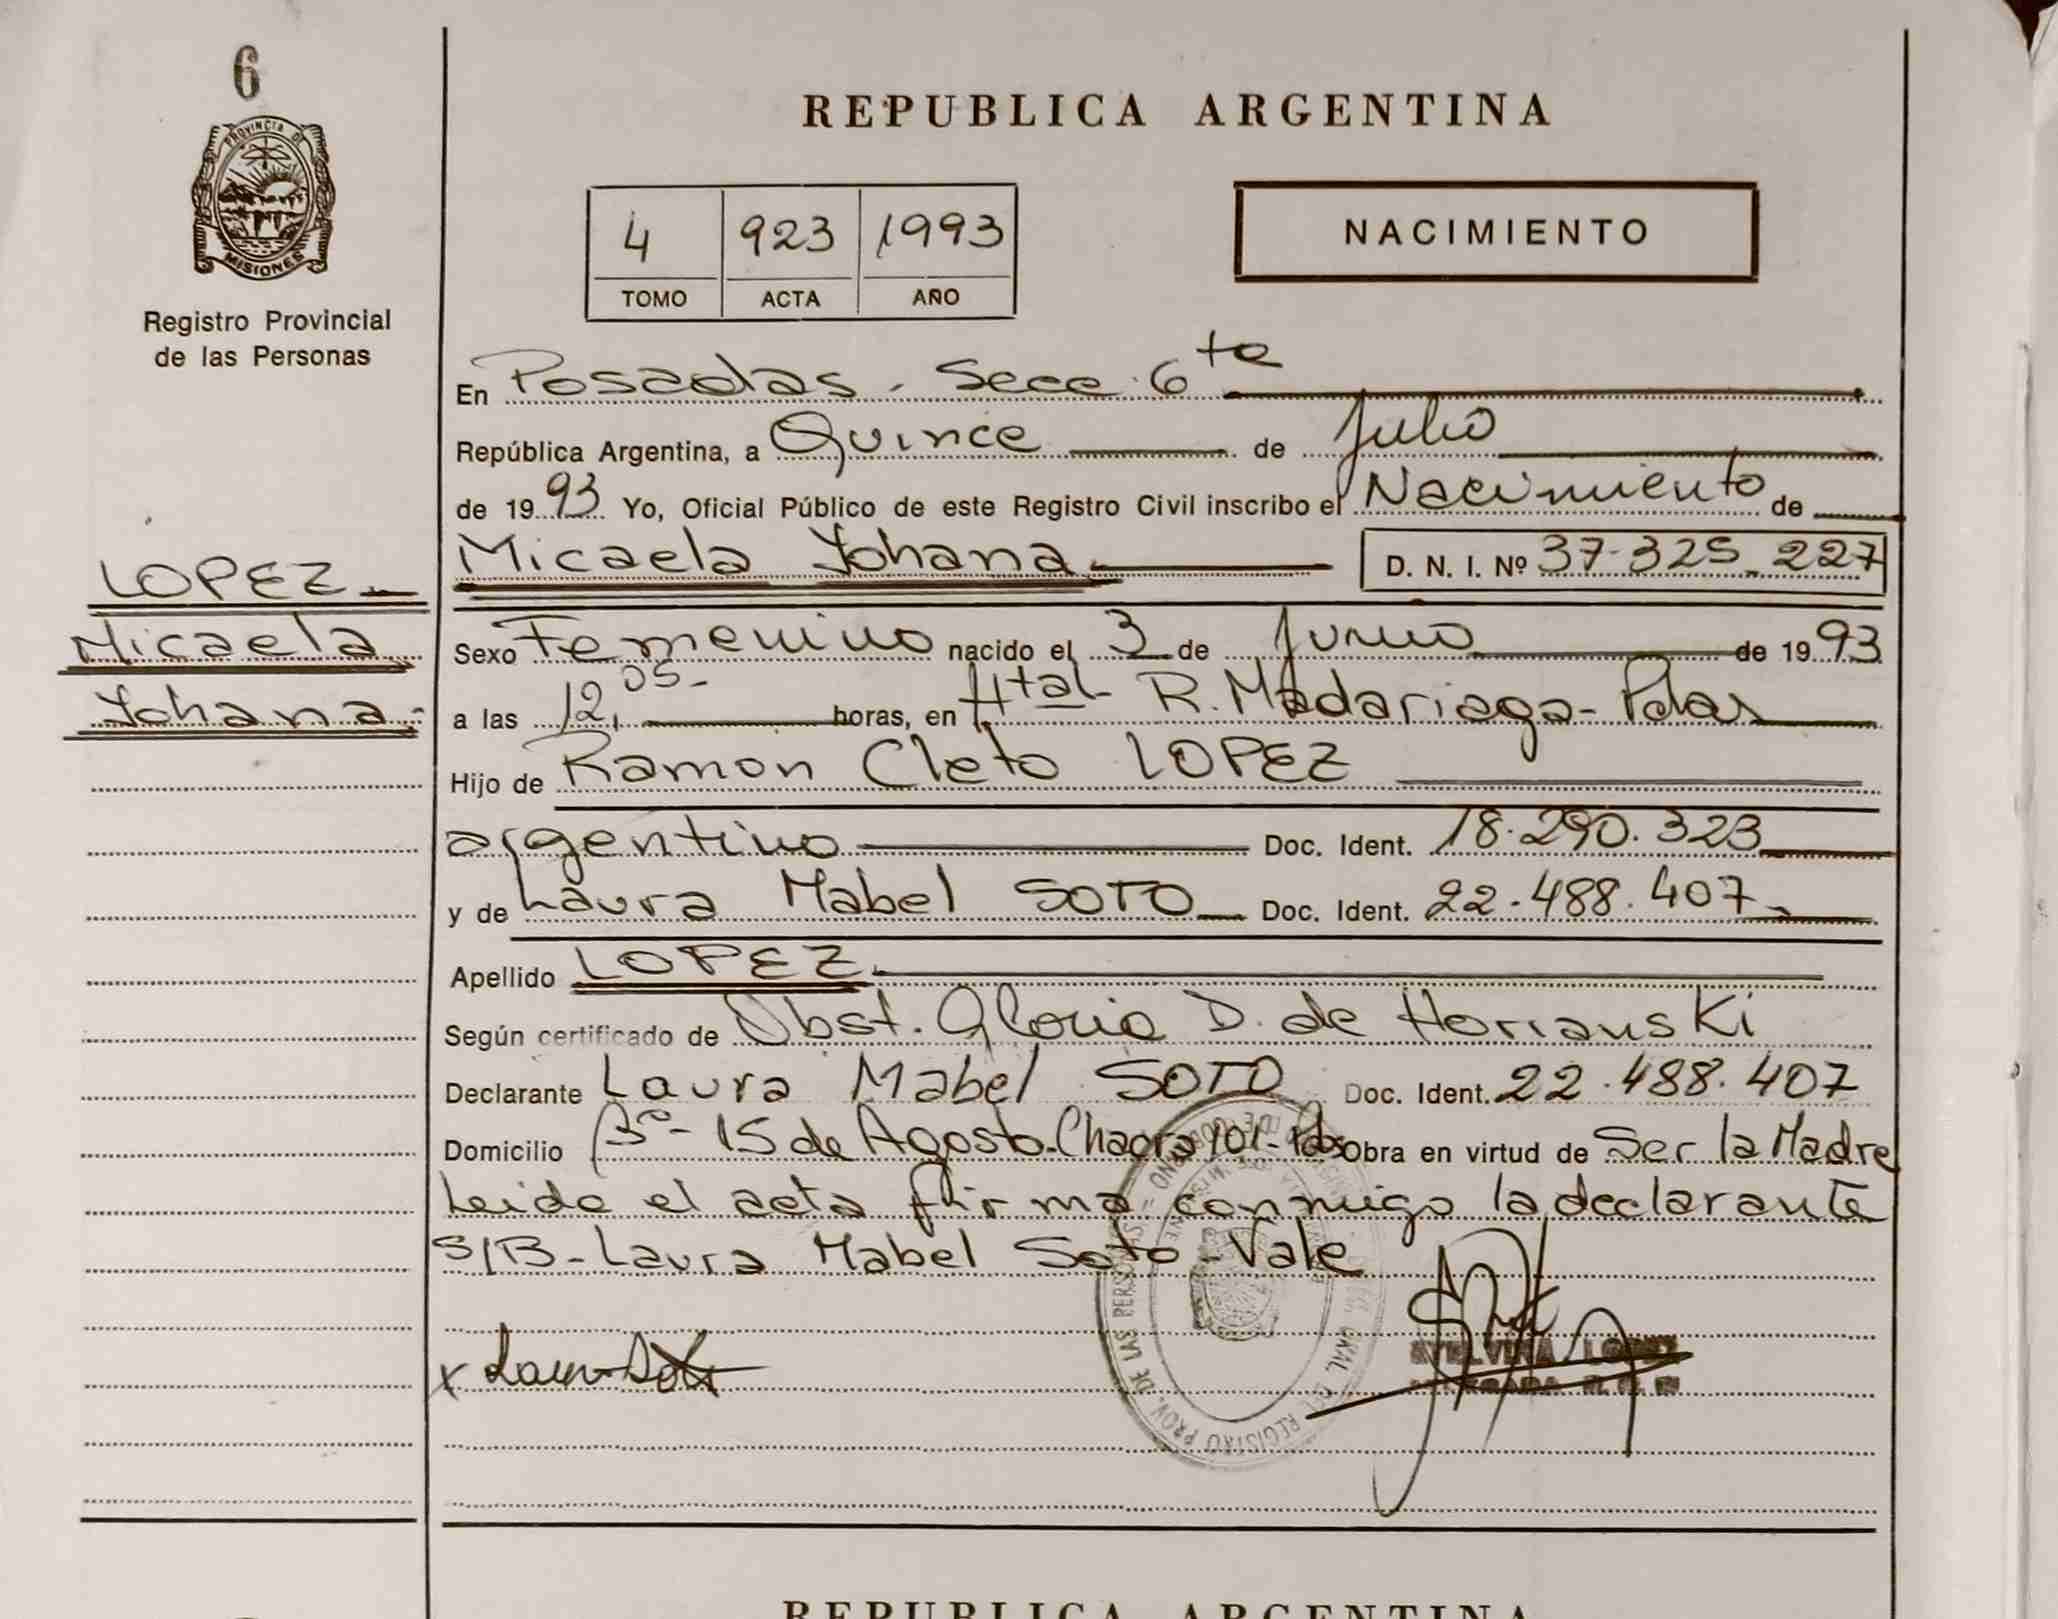 6
PROVINCIA DE
MISIONES
Registro Provincial
de las Personas
REPUBLICA ARGENTINA
4 923 1993
TOMO ACTA AÑO
NACIMIENTO
En Posadas - Secc. 6ta
República Argentina, a Quince de Julio
de 1993 Yo, Oficial Público de este Registro Civil inscribo el Nacimiento de
Micaela Yohana D. N. I. Nº 37-325-227
LOPEZ
Micaela
Yohana
Sexo Femenino nacido el 3 de Junio de 1993
a las 12,05- horas, en Htal R. Madariaga - Pdas
Hijo de Ramon Cleto LOPEZ
argentino Doc. Ident. 18.290.323
y de Laura Mabel SOTO Doc. Ident. 22.488.407
Apellido LOPEZ
Según certificado de Obst. Gloria D. de Horianski
Declarante Laura Mabel SOTO Doc. Ident. 22.488.407
Domicilio Bº - 15 de Agosto - Chacra 101 - Pdas Obra en virtud de Ser la Madre
Leida el acta firma conmigo la declarante
S/B - Laura Mabel Soto - Vale
x Laura Soto
LOPEZ
DE LAS PERSONAS
REGISTRO PROV.
REPUBLICA ARGENTINA